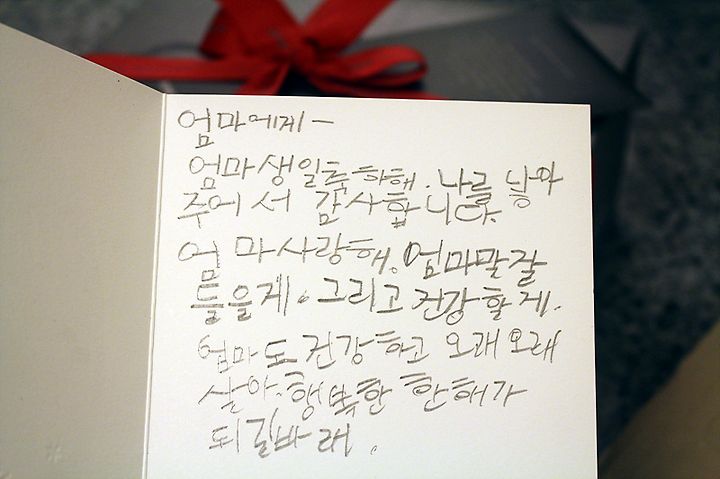 엄마에게-
엄마생일축하해. 나를 낳아
주어서 감사합니다.
엄마사랑해. 엄마말잘
들을게. 그리고 건강할게.
엄마도 건강하고 오래오래
살아. 행복한 한해가
되길바래.